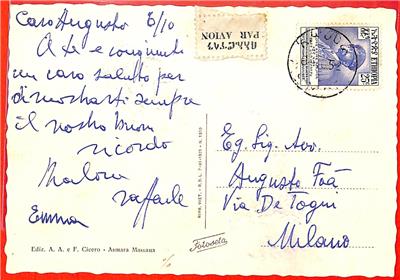 Caro Augusto 6/10
A te e congiunti
un caro saluto per
dimostrarti sempre
il nostro buon
ricordo
Raffaele
Emma
PAR AVION
Eg. Sig. Avv.
Augusto Foà
Via De Togni
Milano
Fotoseta
Ediz. A. A. e F. Cicero - Asmara Massaua